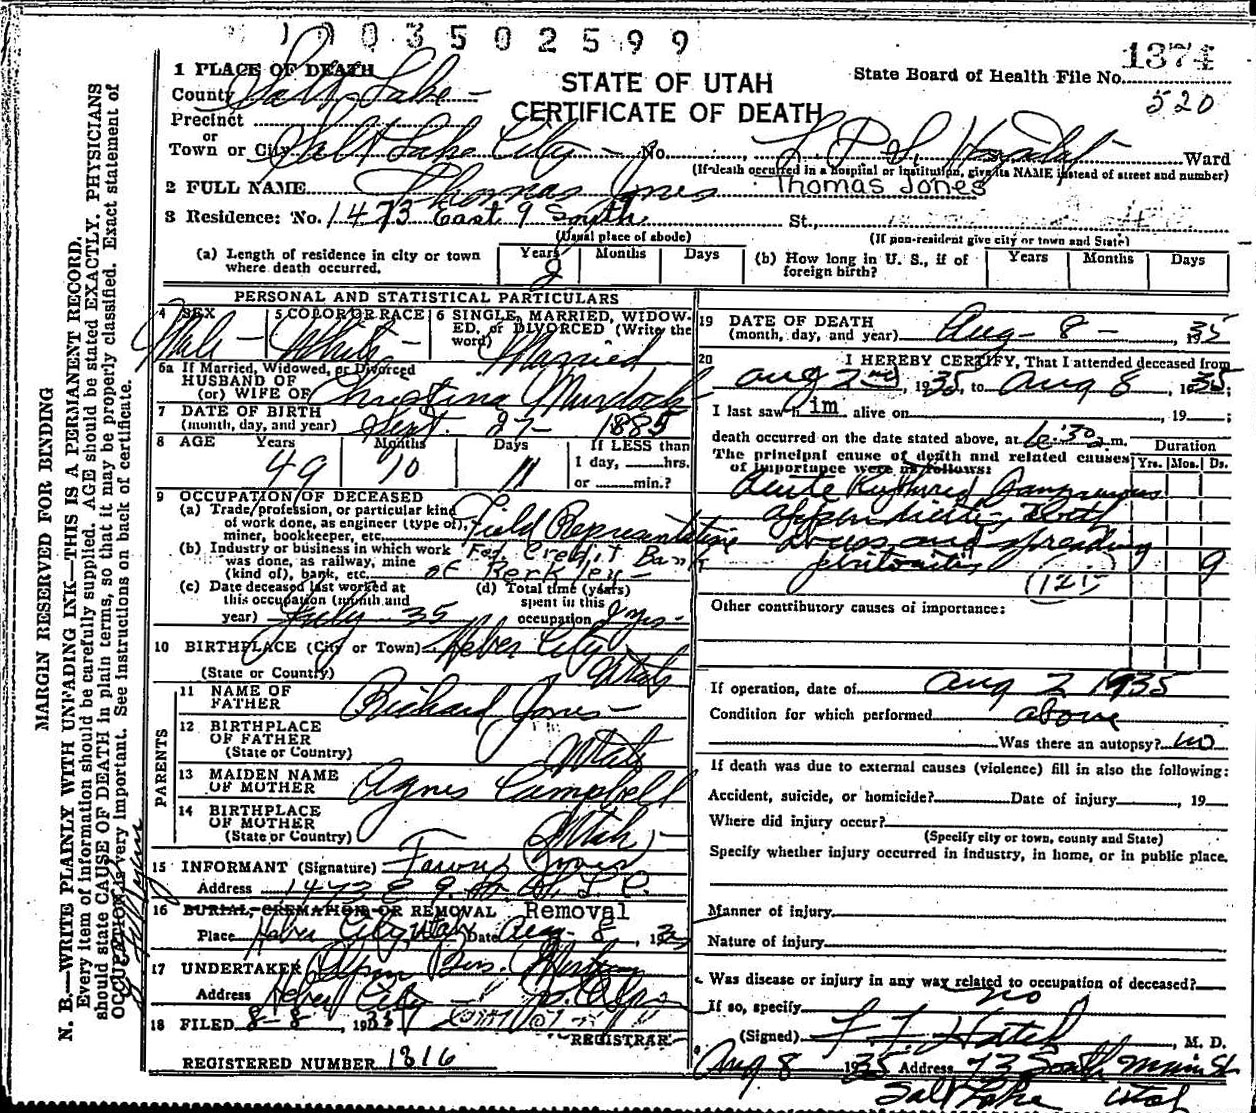 1003502599
1374
STATE OF UTAH
CERTIFICATE OF DEATH
State Board of Health File No.
520
1 PLACE OF DEATH
County Salt Lake
Precinct
or
Town or City Salt Lake City No. L. D. S. Hospital Ward
(If death occurred in a hospital or institution, give its NAME instead of street and number)
2 FULL NAME Thomas Jones Thomas Jones
3 Residence: No. 1473 East 9 South St.,
(Usual place of abode) (If non-resident give city or town and State)
(a) Length of residence in city or town where death occurred. Years 8 Months Days
(b) How long in U. S., if of foreign birth? Years Months Days
PERSONAL AND STATISTICAL PARTICULARS
4 SEX Male
5 COLOR OR RACE White
6 SINGLE, MARRIED, WIDOWED, or DIVORCED (Write the word) Married
6a If Married, Widowed, or Divorced
HUSBAND OF
(or) WIFE OF Christina Murdock
7 DATE OF BIRTH
(month, day, and year) Sept. 27 - 1885
8 AGE Years 49 Months 10 Days 11 If LESS than
1 day, hrs.
or min.?
9 OCCUPATION OF DECEASED
(a) Trade, profession, or particular kind
of work done, as engineer (type of),
miner, bookkeeper, etc. Field Representative
(b) Industry or business in which work
was done, as railway, mine
(kind of), bank, etc. Fed. Credit Bank
of Berkley
(c) Date deceased last worked at
this occupation (month and
year) July 35
(d) Total time (years)
spent in this
occupation yrs
10 BIRTHPLACE (City or Town) Heber City
(State or Country) Utah
PARENTS
11 NAME OF
FATHER Richard Jones
12 BIRTHPLACE
OF FATHER
(State or Country) Utah
13 MAIDEN NAME
OF MOTHER Agnes Campbell
14 BIRTHPLACE
OF MOTHER
(State or Country) Utah
15 INFORMANT (Signature) Jones
Address 1473 E 9 So. S. L. C.
16 BURIAL, CREMATION OR REMOVAL Removal
Place Heber City Utah Date Aug - 8, 1935
17 UNDERTAKER Bros. Mortuary
Address Heber City
18 FILED 8-8, 1935
REGISTRAR
REGISTERED NUMBER 1316
19 DATE OF DEATH
(month, day, and year) Aug - 8 - 1935
20 I HEREBY CERTIFY, That I attended deceased from
Aug 2nd, 1935, to Aug 8, 1935;
I last saw him alive on , 19 ;
death occurred on the date stated above, at 6:30a m.
The principal cause of death and related causes
of importance were as follows:
Duration
Yrs. Mos. Ds.
Acute Ruptured Gangrenous
appendicitis, both
abscess and spreading
peritonitis 9
(121)
Other contributory causes of importance:
If operation, date of Aug 2 1935
Condition for which performed above
Was there an autopsy? no
If death was due to external causes (violence) fill in also the following:
Accident, suicide, or homicide? Date of injury , 19
Where did injury occur?
(Specify city or town, county and State)
Specify whether injury occurred in industry, in home, or in public place.
Manner of injury
Nature of injury
Was disease or injury in any way related to occupation of deceased?
If so, specify no
(Signed) F. F. Hatch, M. D.
Aug 8 1935 Address 73 South Main St
Salt Lake Utah
MARGIN RESERVED FOR BINDING
N. B.—WRITE PLAINLY WITH UNFADING INK—THIS IS A PERMANENT RECORD.
Every item of information should be carefully supplied. AGE should be stated EXACTLY. PHYSICIANS
should state CAUSE OF DEATH in plain terms, so that it may be properly classified. Exact statement of
OCCUPATION is very important. See instructions on back of certificate.